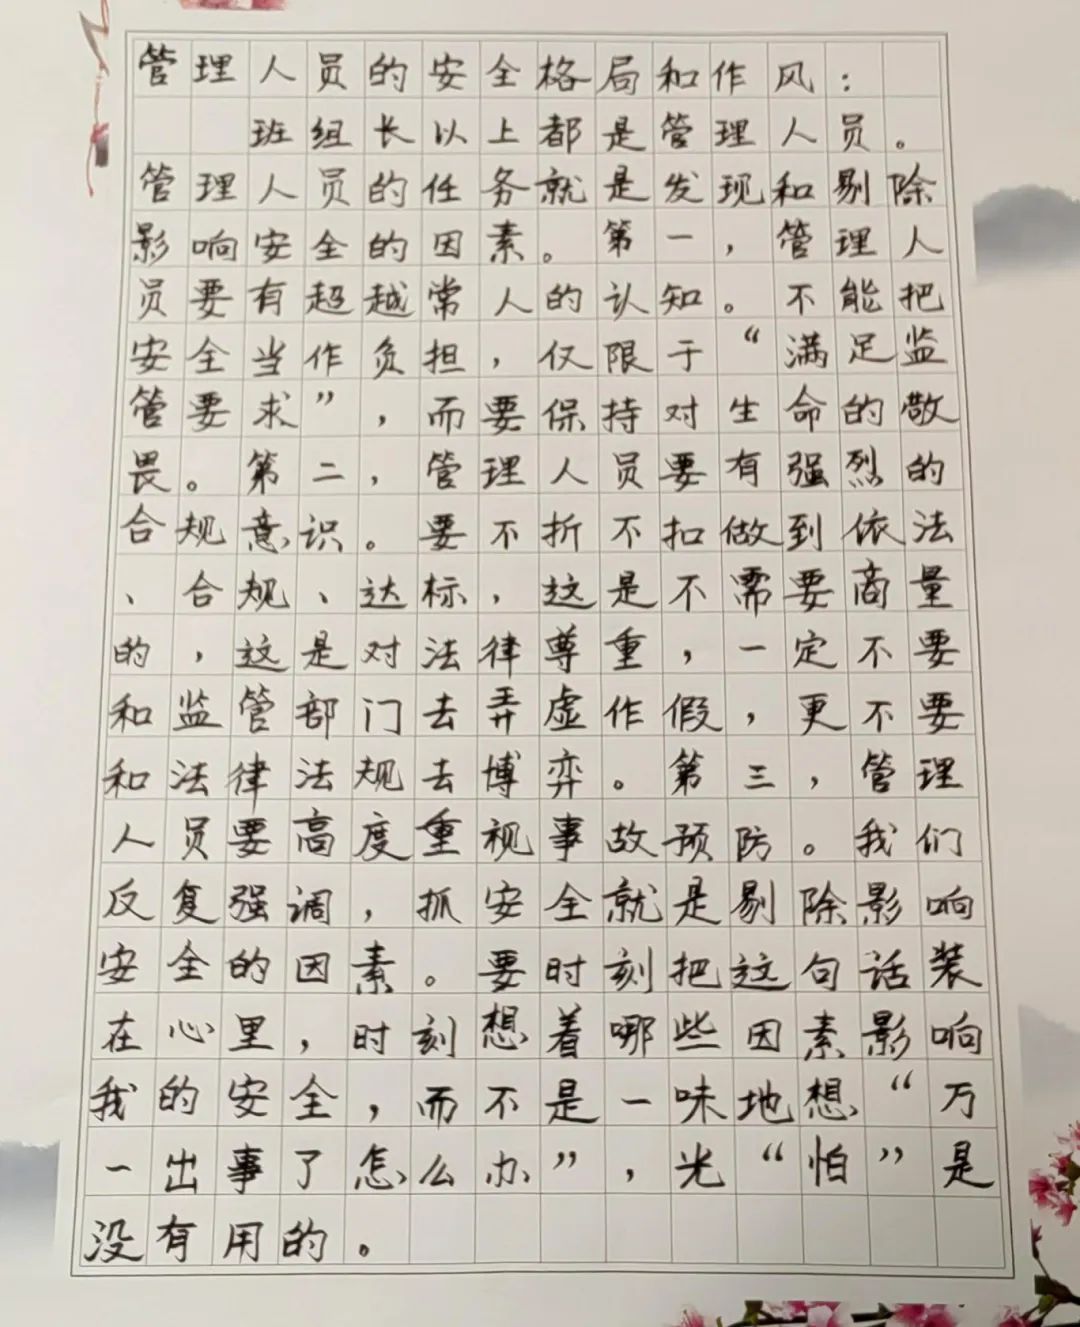 管理人员的安全格局和作风：
班组长以上都是管理人员。
管理人员的任务就是发现和剔除
影响安全的因素。第一，管理人
员要有超越常人的认知。不能把
安全当作负担，仅限于“满足监
管要求”，而要保持对生命的敬
畏。第二，管理人员要有强烈的
合规意识。要不折不扣做到依法
、合规、达标，这是不需要商量
的，这是对法律尊重，一定不要
和监管部门去弄虚作假，更不要
和法律法规去博弈。第三，管理
人员要高度重视事故预防。我们
反复强调，抓安全就是剔除影响
安全的因素。要时刻把这句话装
在心里，时刻想着哪些因素影响
我的安全，而不是一味地想“万
一出事了怎么办”，光“怕”是
没有用的。